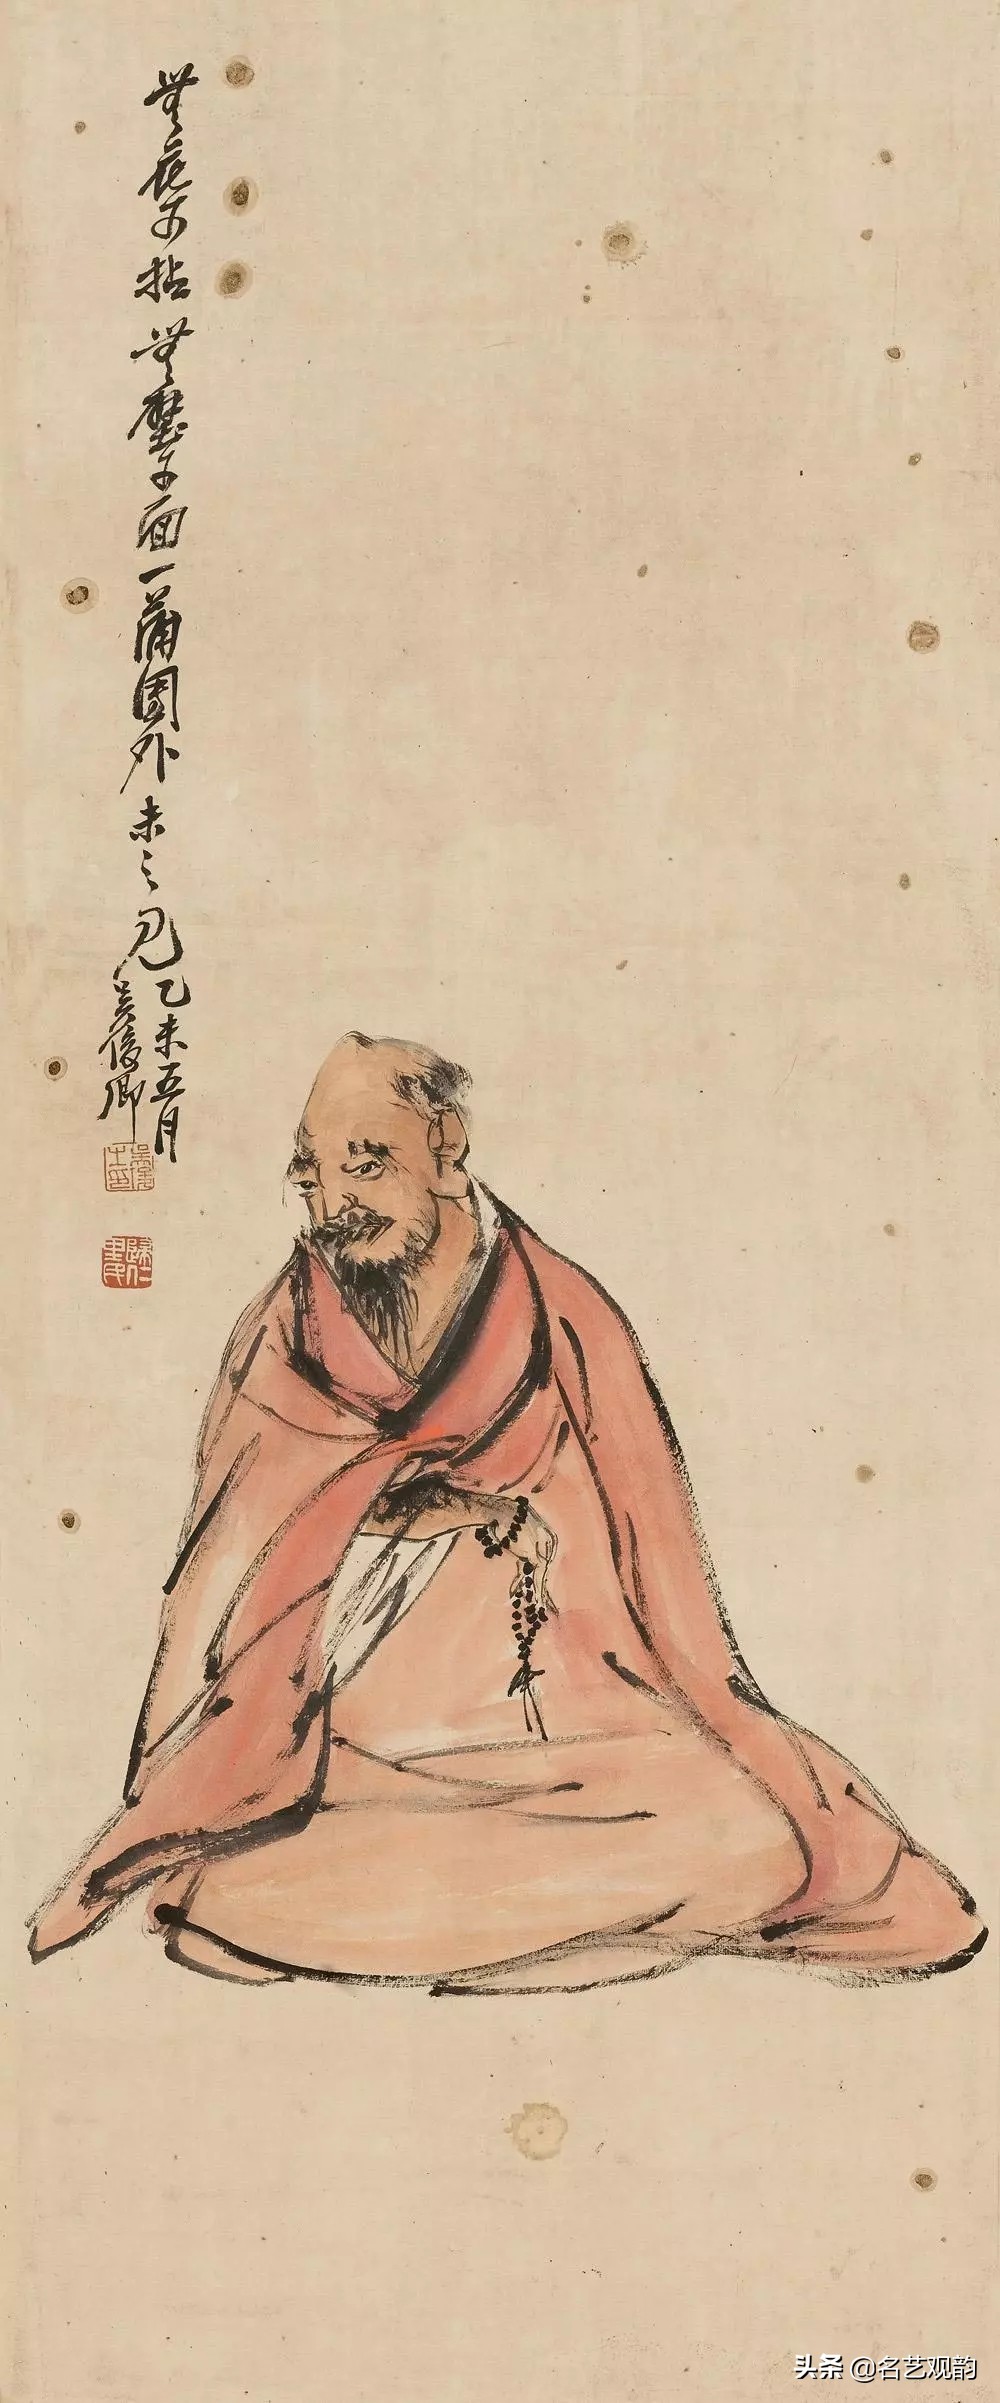 無花可拈無壁可面一蒲團外未之見
乙未五月
吳俊卿
歸仁里民
头条 @名艺观韵